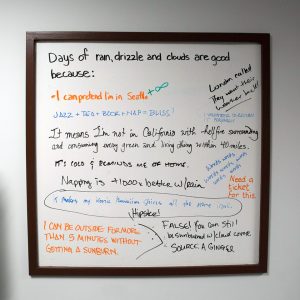 Days of rain, drizzle and clouds are good
because:
London called
they want their
weather back!
I can pretend I'm in Seattle +∞
JAZZ + TEA + BOOK + NAP = BLISS!
It means I'm not in California with hellfire surrounding
and consuming every green and living thing within 40 miles.
IT'S COLD & REMINDS ME OF HOME.
Napping is +1000% better w/rain
words words
words words
Need a
ticket for
this.
It makes my iconic
all the more
Hipster!
I CAN BE OUTSIDE FOR MORE
THAN 5 MINUTES WITHOUT
GETTING A SUNBURN.
FALSE! You can still
be sunburned w/cloud cover
SOURCE: A GINGER